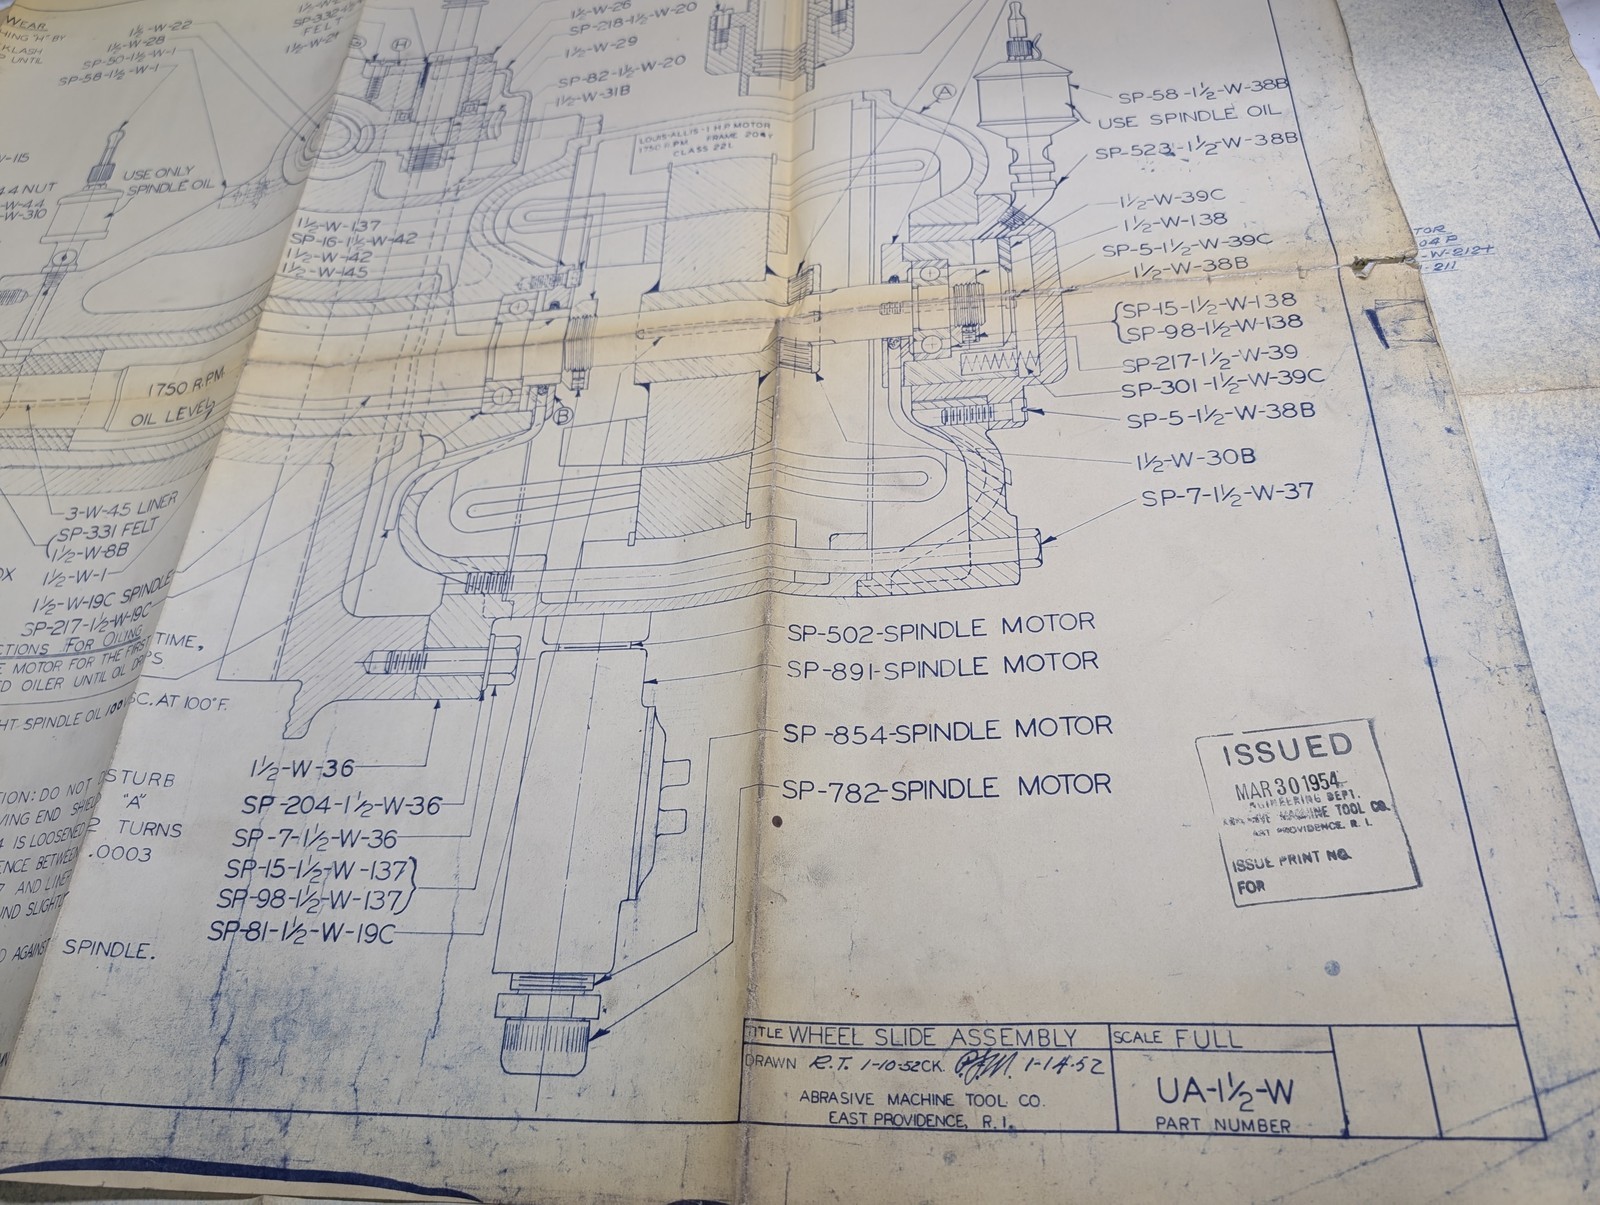 WEAR
1½-W-22
1½-W-28
SP-50-1½-W-1
SP-58-1½-W-1
UNTIL
FELT
H
1½-W-26
SP-218-1½-W-20
1½-W-29
SP-82-1½-W-20
1½-W-31B
LOUIS-ALLIS-1 H.P. MOTOR
1750 R.P.M. FRAME
CLASS 221.
A
SP-58-1½-W-38B
USE SPINDLE OIL
SP-523-1½-W-38B
1½-W-39C
1½-W-138
SP-5-1½-W-39C
1½-W-38B
SP-15-1½-W-138
SP-98-1½-W-138
SP-217-1½-W-39
SP-301-1½-W-39C
SP-5-1½-W-38B
1½-W-30B
SP-7-1½-W-37
-W-115
NUT
USE ONLY
SPINDLE OIL
1½-W-137
SP-16-1½-W-42
1½-W-42
1½-W-145
B
1750 R.P.M.
OIL LEVEL
3-W-45 LINER
SP-331 FELT
1½-W-8B
1½-W-1
1½-W-19C SPINDLE
SP-217-1½-W-19C
FOR OILING
MOTOR FOR THE FIRST TIME,
OILER UNTIL OIL
SPINDLE OIL 100 SC. AT 100°F.
DO NOT DISTURB
END "A"
IS LOOSENED 2 TURNS
.0003
AND
SLIGHT
AGAINST SPINDLE.
1½-W-36
SP-204-1½-W-36
SP-7-1½-W-36
SP-15-1½-W-137
SP-98-1½-W-137
SP-81-1½-W-19C
SP-502-SPINDLE MOTOR
SP-891-SPINDLE MOTOR
SP-854-SPINDLE MOTOR
SP-782-SPINDLE MOTOR
ISSUED
MAR 30 1954
ENGINEERING DEPT.
ABRASIVE MACHINE TOOL CO.
EAST PROVIDENCE, R. I.
ISSUE PRINT NO.
FOR
TITLE WHEEL SLIDE ASSEMBLY
SCALE FULL
DRAWN R.T. 1-10-52 CK. 1-14-52
ABRASIVE MACHINE TOOL CO.
EAST PROVIDENCE, R. I.
UA-1½-W
PART NUMBER